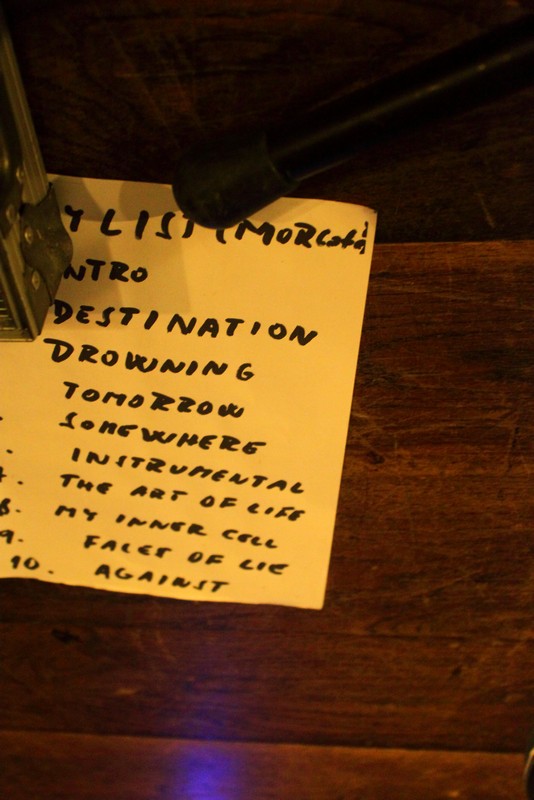 Y LIST
NTRO
DESTINATION
DROWNING
TOMORROW
SOMEWHERE
INSTRUMENTAL
7. THE ART OF LIFE
8. MY INNER CELL
9. FACES OF LIE
10. AGAINST